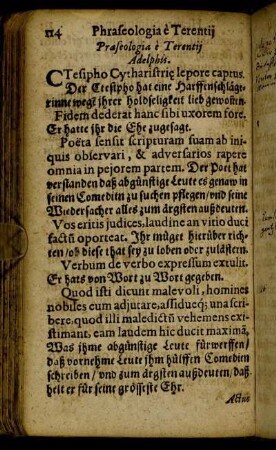 114 Phraseologia è Terentij
Præseologia è Terentij
Adelphis.
CTesipho Cytharistrię lepore captus.
Der Ctestpho hat eine Harffenschläge-
rinne wegẽ jhrer holdseligkeit lieb gewoñen.
Fidem dederat hanc sibi uxorem fore.
Er hatte jhr die Ehe zugesagt.
Poëta sensit scripturam suam ab ini-
quis observari, & adversarios rapere
omnia in pejorem partem. Der Poet hat
verstanden daß abgünstige Leute es genaw in
seinen Comedien zu suchen pflegen/ und seine
Wiedersacher alles zum ärgsten außdeuten.
Vos eritis judices, laudine an vitio duci
factũ oporteat. Ihr müget hierüber rich-
ten/ ob diese that sey zu loben oder zulästern.
Verbum de verbo expressum extulit.
Er hats von Wort zu Wort gegeben.
Quod isti dicunt malevoli, homines
nobiles eum adjutare, assidueq; una scri-
bere, quod illi maledictũ vehemens exi-
stimant, eam laudem hic ducit maximã,
Was jhme abgünstige Leute fürwerffen/
daß vornehme Leute jhm hülffen Comedien
schreiben/ und zum ärgsten außdeuten/ daß
helt er für seine grösseste Ehr.
Actus